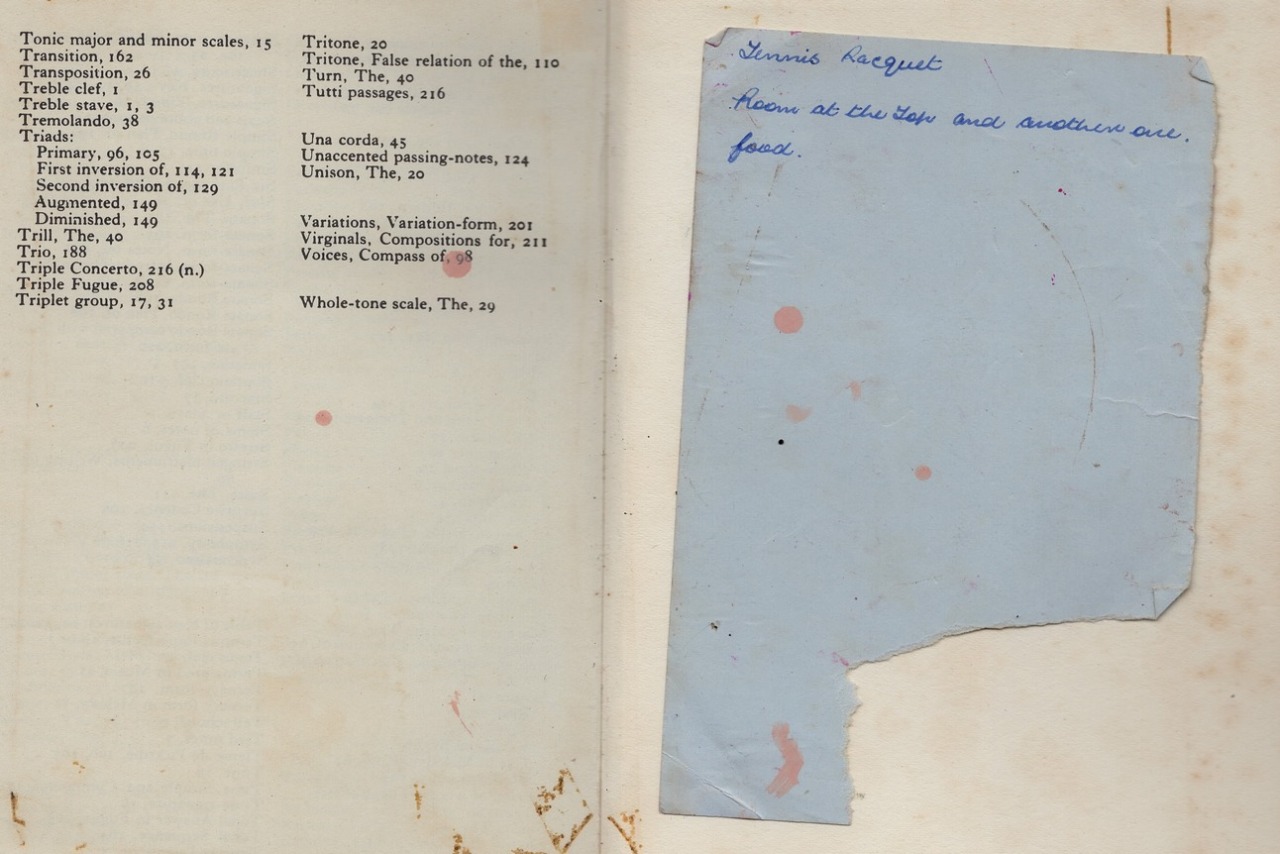 Tonic major and minor scales, 15
Transition, 162
Transposition, 26
Treble clef, 1
Treble stave, 1, 3
Tremolando, 38
Triads:
Primary, 96, 105
First inversion of, 114, 121
Second inversion of, 129
Augmented, 149
Diminished, 149
Trill, The, 40
Trio, 188
Triple Concerto, 216 (n.)
Triple Fugue, 208
Triplet group, 17, 31
Tritone, 20
Tritone, False relation of the, 110
Turn, The, 40
Tutti passages, 216
Una corda, 45
Unaccented passing-notes, 124
Unison, The, 20
Variations, Variation-form, 201
Virginals, Compositions for, 211
Voices, Compass of, 98
Whole-tone scale, The, 29
Tennis Racquet
Room at the Top and another one.
food.